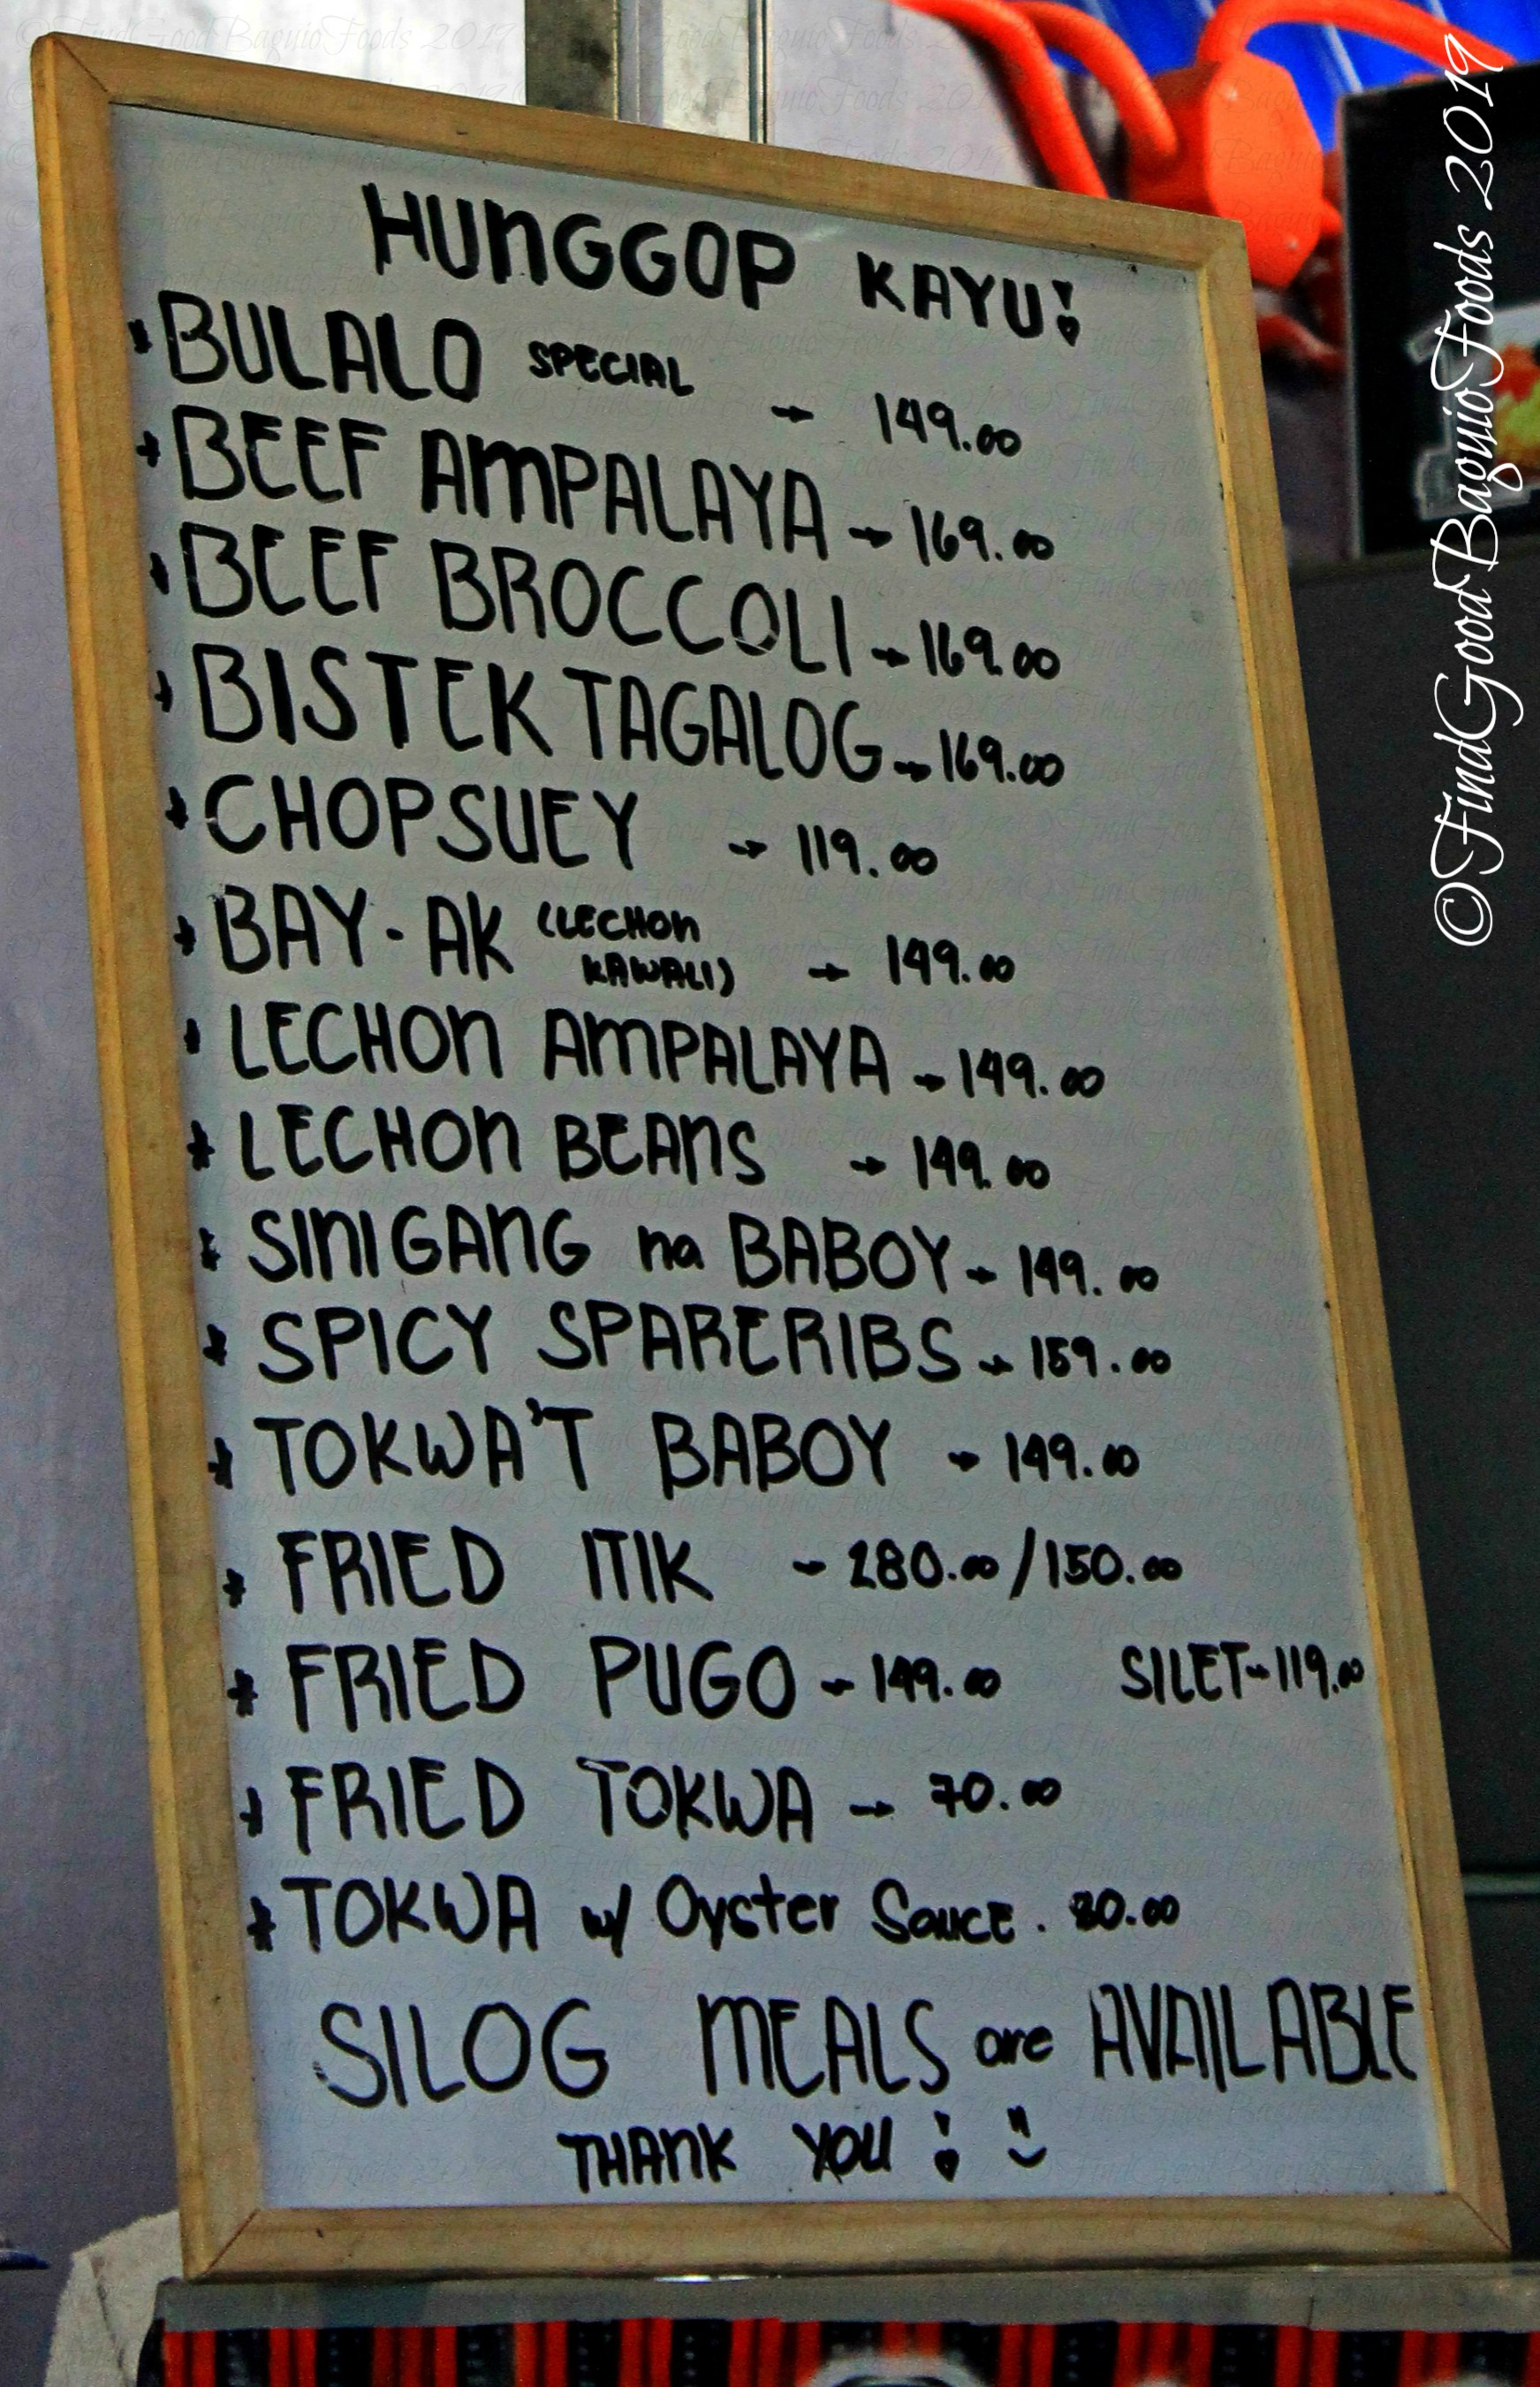 HUNGGOP KAYU!
* BULALO SPECIAL → 149.00
* BEEF AMPALAYA → 169.00
* BEEF BROCCOLI → 169.00
* BISTEK TAGALOG → 169.00
* CHOPSUEY → 119.00
* BAY-AK (LECHON KAWALI) → 149.00
* LECHON AMPALAYA → 149.00
* LECHON BEANS → 149.00
* SINIGANG na BABOY → 149.00
* SPICY SPARERIBS → 159.00
* TOKWA'T BABOY → 149.00
* FRIED ITIK - 280.00/150.00
* FRIED PUGO → 149.00 SILET → 119.00
* FRIED TOKWA → 70.00
* TOKWA w/ Oyster Sauce . 80.00
SILOG MEALS are AVAILABLE
THANK YOU!
©FindGoodBaguioFoods 2019